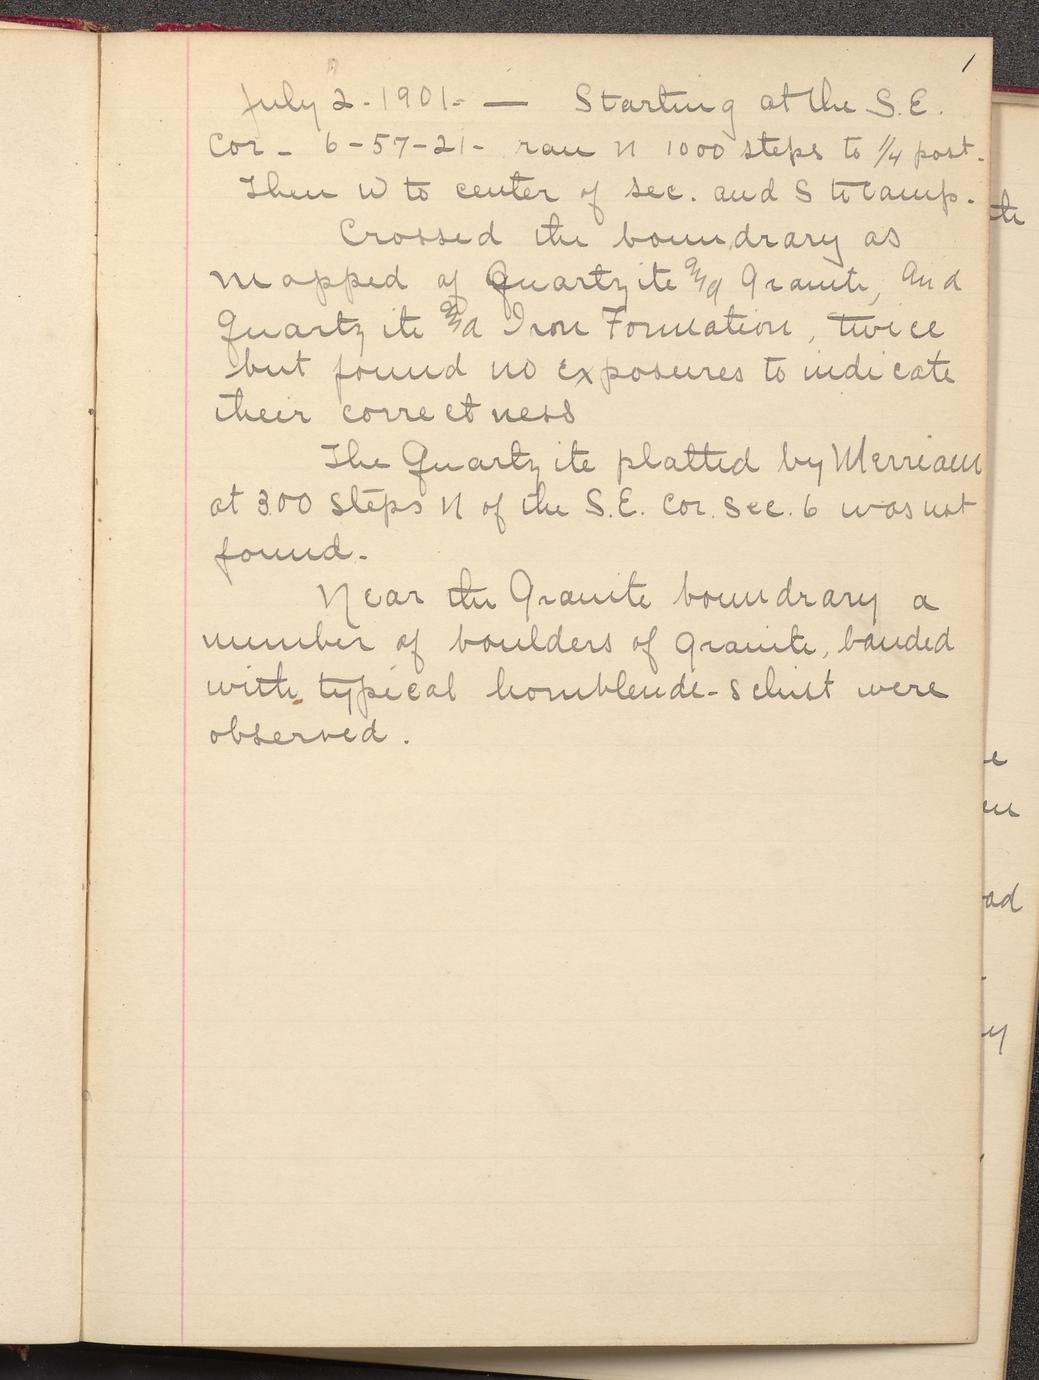 1
July 2 - 1901 - — Starting at the S.E.
Cor - 6-57-21- ran N 1000 steps to 1/4 post.
Then W to center of sec. and S to camp.
Crossed the boundrary as
mapped of Quartzite Granite, And
Quartzite Iron Formation, twice
but found no exposures to indicate
their correctness
The Quartzite platted by Merriam
at 300 steps N of the S.E. Cor. Sec. 6 was not
found.
Near the Granite boundrary a
number of boulders of granite, banded
with typical hornblende-schist were
observed.